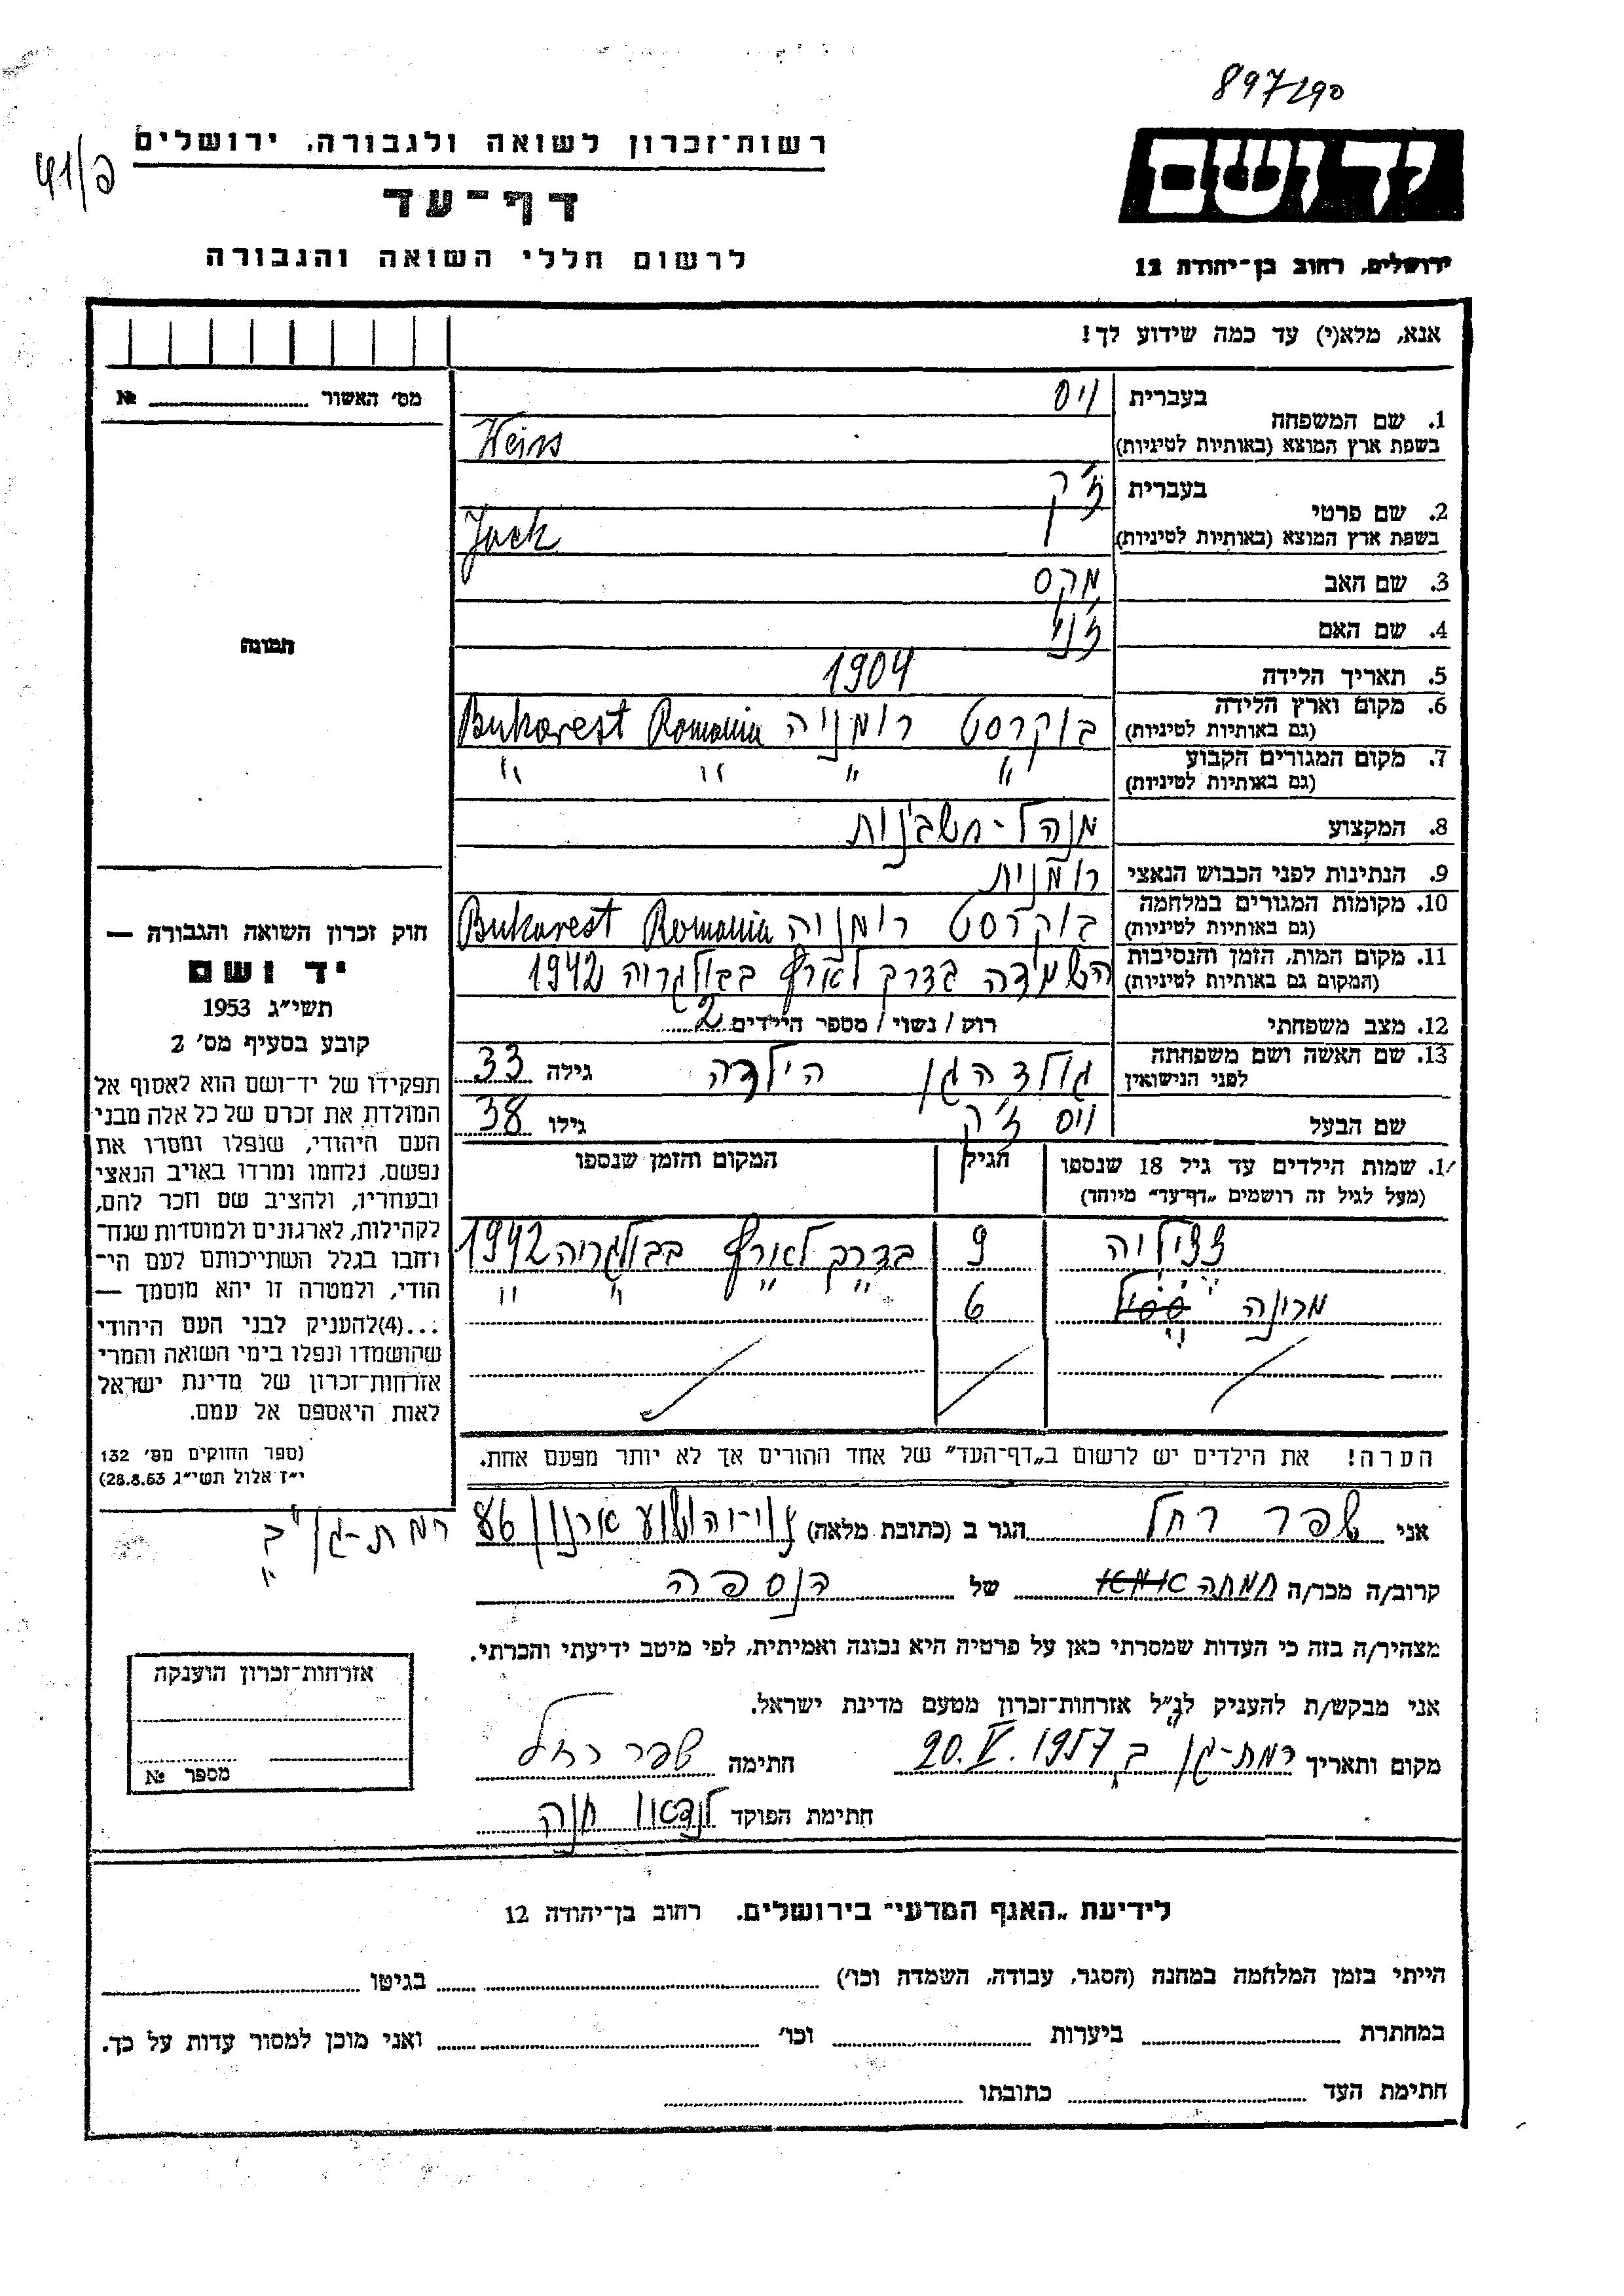 897290
41/פ
רשות־זכרון לשואה ולגבורה, ירושלים
דף־עד
לרשום חללי השואה והגבורה
יד ושם
ירושלים, רחוב בן־יהודה 12
אנא, מלא(י) עד כמה שידוע לך!
מס׳ האשור № 
1. שם המשפחה
בעברית ויס
בשפת ארץ המוצא (באותיות לטיניות) Weiss
2. שם פרטי
בעברית ז׳ק
בשפת ארץ המוצא (באותיות לטיניות) Jack
3. שם האב מקס
4. שם האם ז׳ני
5. תאריך הלידה 1904
6. מקום וארץ הלידה (גם באותיות לטיניות) בוקרסט רומניה Bukarest Romania
7. מקום המגורים הקבוע (גם באותיות לטיניות) " " " "
8. המקצוע מנהל-חשבנות
9. הנתינות לפני הכבוש הנאצי רומנית
10. מקומות המגורים במלחמה (גם באותיות לטיניות) בוקרסט רומניה Bukarest Romania
11. מקום המות, הזמן והנסיבות (המקום גם באותיות לטיניות) השמדה בדרך לארץ בבולגריה 1942
12. מצב משפחתי רוק / נשוי / מספר הילדים 2
13. שם האשה ושם משפחתה לפני הנישואין גולדהגן הילדה גילה 33
שם הבעל ויס ז׳ק גילו 38
1. שמות הילדים עד גיל 18 שנספו
(מעל לגיל זה רושמים „דף־עד" מיוחד)
הגיל
המקום והזמן שנספו
צציליה 9 בדרך לארץ בבולגריה 1942
מרונה 6 " " " "
הערה! את הילדים יש לרשום ב„דף־העד" של אחד ההורים אך לא יותר מפעם אחת.
תמונה
חוק זכרון השואה והגבורה —
יד ושם
תשי״ג 1953
קובע בסעיף מס׳ 2
תפקידו של יד־ושם הוא לאסוף אל
המולדת את זכרם של כל אלה מבני
העם היהודי, שנפלו ומסרו את
נפשם, נלחמו ומרדו באויב הנאצי
ובעוזריו, ולהציב שם וזכר להם,
לקהילות, לארגונים ולמוסדות שנח־
רחבו בגלל השתייכותם לעם הי־
הודי, ולמטרה זו יהא מוסמך —
...(4)להעניק לבני העם היהודי
שהושמדו ונפלו בימי השואה והמרי
אזרחות־זכרון של מדינת ישראל
לאות היאספם אל עמם.
(ספר החוקים מס׳ 132
י״ז אלול תשי״ג 28.8.53)
אני שפר רחל הגר ב (כתובת מלאה) 68 רמת-גן
קרוב/ה מכר/ה חמתה של הנספה
מצהיר/ה בזה כי העדות שמסרתי כאן על פרטיה היא נכונה ואמיתית, לפי מיטב ידיעתי והכרתי.
אני מבקש/ת להעניק לנ״ל אזרחות־זכרון מטעם מדינת ישראל.
מקום ותאריך רמת-גן ב 20.V.1957 חתימה שפר רחל
חתימת הפוקד לנדאו חנה
אזרחות־זכרון הוענקה
מספר №
לידיעת „האגף המדעי" בירושלים. רחוב בן־יהודה 12
הייתי בזמן המלחמה במחנה (הסגר, עבודה, השמדה וכו׳) בגיטו
במחתרת ביערות וכו׳ ואני מוכן למסור עדות על כך.
חתימת העד כתובתו